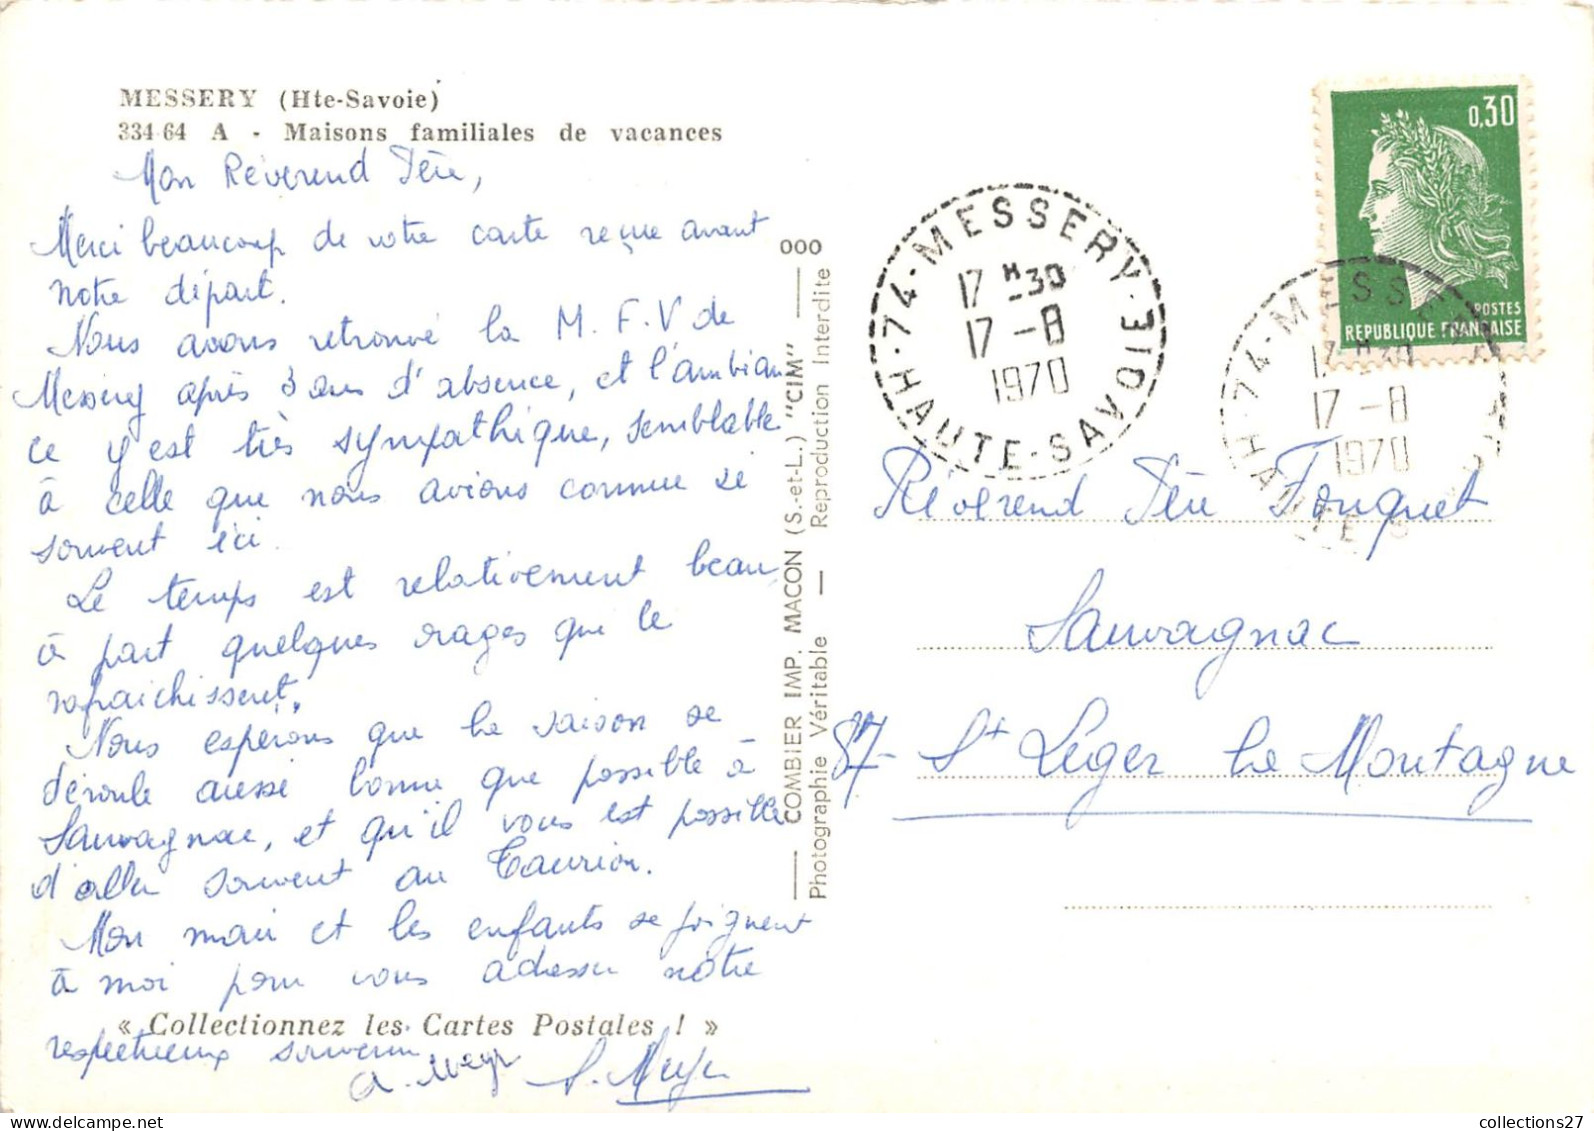 MESSERY (Hte-Savoie)
334-64 A - Maisons familiales de vacances
Mon Révérend Père,
Merci beaucoup de votre carte reçue avant
notre départ.
Nous avons retrouvé la M.F.V de
Messery après 3 ans d'absence, et l'ambian
ce y est très sympathique, semblable
à celle que nous avions connue si
souvent ici.
Le temps est relativement beau,
à part quelques orages que le
rafraichissent.
Nous espérons que la saison se
déroule aussi bonne que possible à
Sauvagnac, et qu'il vous est possible
d'aller souvent au Taurion.
Mon mari et les enfants se joignent
à moi pour vous adresser notre
« Collectionnez les Cartes Postales ! »
respectueux souvenir
000
COMBIER IMP. MACON (S.-et-L.) "CIM"
Photographie Véritable — Reproduction Interdite
74-MESSERY-HAUTE-SAVOIE
17 H 30
17 -8
1970
0,30
POSTES
REPUBLIQUE FRANÇAISE
74-MESSERY
17 H 30
17 -8
1970
HAUTE-S
Révérend Père Fouquet
Sauvagnac
87- St Léger la Montagne
collections27